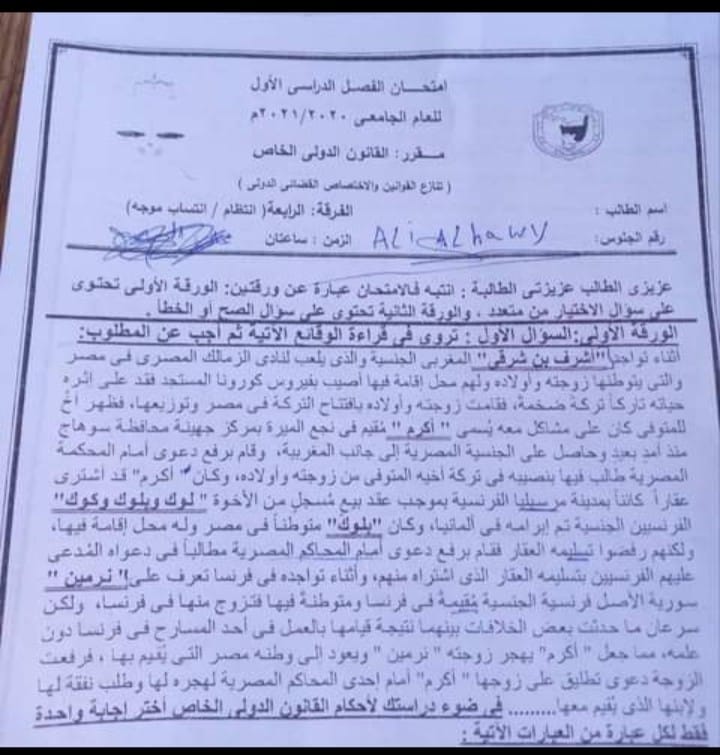 امتحان الفصل الدراسى الأول
للعام الجامعى ٢٠٢١/٢٠٢٠م
مقرر: القانون الدولى الخاص
( تنازع القوانين والاختصاص القضائى الدولى )
اسم الطالب : الفرقة: الرابعة( انتظام / انتساب موجه)
رقم الجلوس: ALi ALhawy الزمن : ساعتان
عزيزى الطالب عزيزتى الطالبة : انتبه فالامتحان عبارة عن ورقتين: الورقة الأولى تحتوى
على سؤال الاختيار من متعدد ، والورقة الثانية تحتوى على سؤال الصح أو الخطأ .
الورقة الأولى:السؤال الأول : تروى فى قراءة الوقائع الآتية ثم أجب عن المطلوب:
أثناء تواجد "أشرف بن شرقى" المغربى الجنسية والذى يلعب لنادى الزمالك المصرى فى مصر
والتى يتوطنها زوجته وأولاده ولهم محل إقامة فيها أصيب بفيروس كورونا المستجد فقد على إثره
حياته تاركاً تركة ضخمة، فقامت زوجته وأولاده بافتتاح التركة فى مصر وتوزيعها، فظهر أخٌ
للمتوفى كان على مشاكل معه يُسمى " أكرم " مُقيم فى نجع الميرة بمركز جهينة محافظة سوهاج
منذ أمدٍ بعيدٍ وحاصل على الجنسية المصرية إلى جانب المغربية، وقام برفع دعوى أمام المحكمة
المصرية طالب فيها بنصيبه فى تركة أخيه المتوفى من زوجته وأولاده، وكان " أكرم" قد أشترى
عقاراً كائناً بمدينة مرسيليا الفرنسية بموجب عقد بيع مُسجلٍ من الأخوة " لوك وبلوك وكوك"
الفرنسيين الجنسية تم إبرامه فى ألمانيا، وكان "بلوك" متوطناً فى مصر وله محل إقامة فيها،
ولكنهم رفضوا تسليمه العقار فقام برفع دعوى أمام المحاكم المصرية مطالباً فى دعواه المُدعى
عليهم الفرنسيين بتسليمه العقار الذى اشتراه منهم، وأثناء تواجده فى فرنسا تعرف على " نرمين "
سورية الأصل فرنسية الجنسية مُقيمة فى فرنسا ومتوطنة فيها فتزوج منها فى فرنسا، ولكن
سرعان ما حدثت بعض الخلافات بينهما نتيجة قيامها بالعمل فى أحد المسارح فى فرنسا دون
علمه، مما جعل " أكرم" يهجر زوجته "نرمين " ويعود إلى وطنه مصر التى يُقيم بها ، فرفعت
الزوجة دعوى تطليق على زوجها " أكرم" أمام إحدى المحاكم المصرية لهجره لها وطلب نفقة لها
ولإبنها الذى يُقيم معها......... فى ضوء دراستك لأحكام القانون الدولى الخاص أختر إجابة واحدة
فقط لكل عبارة من العبارات الآتية :